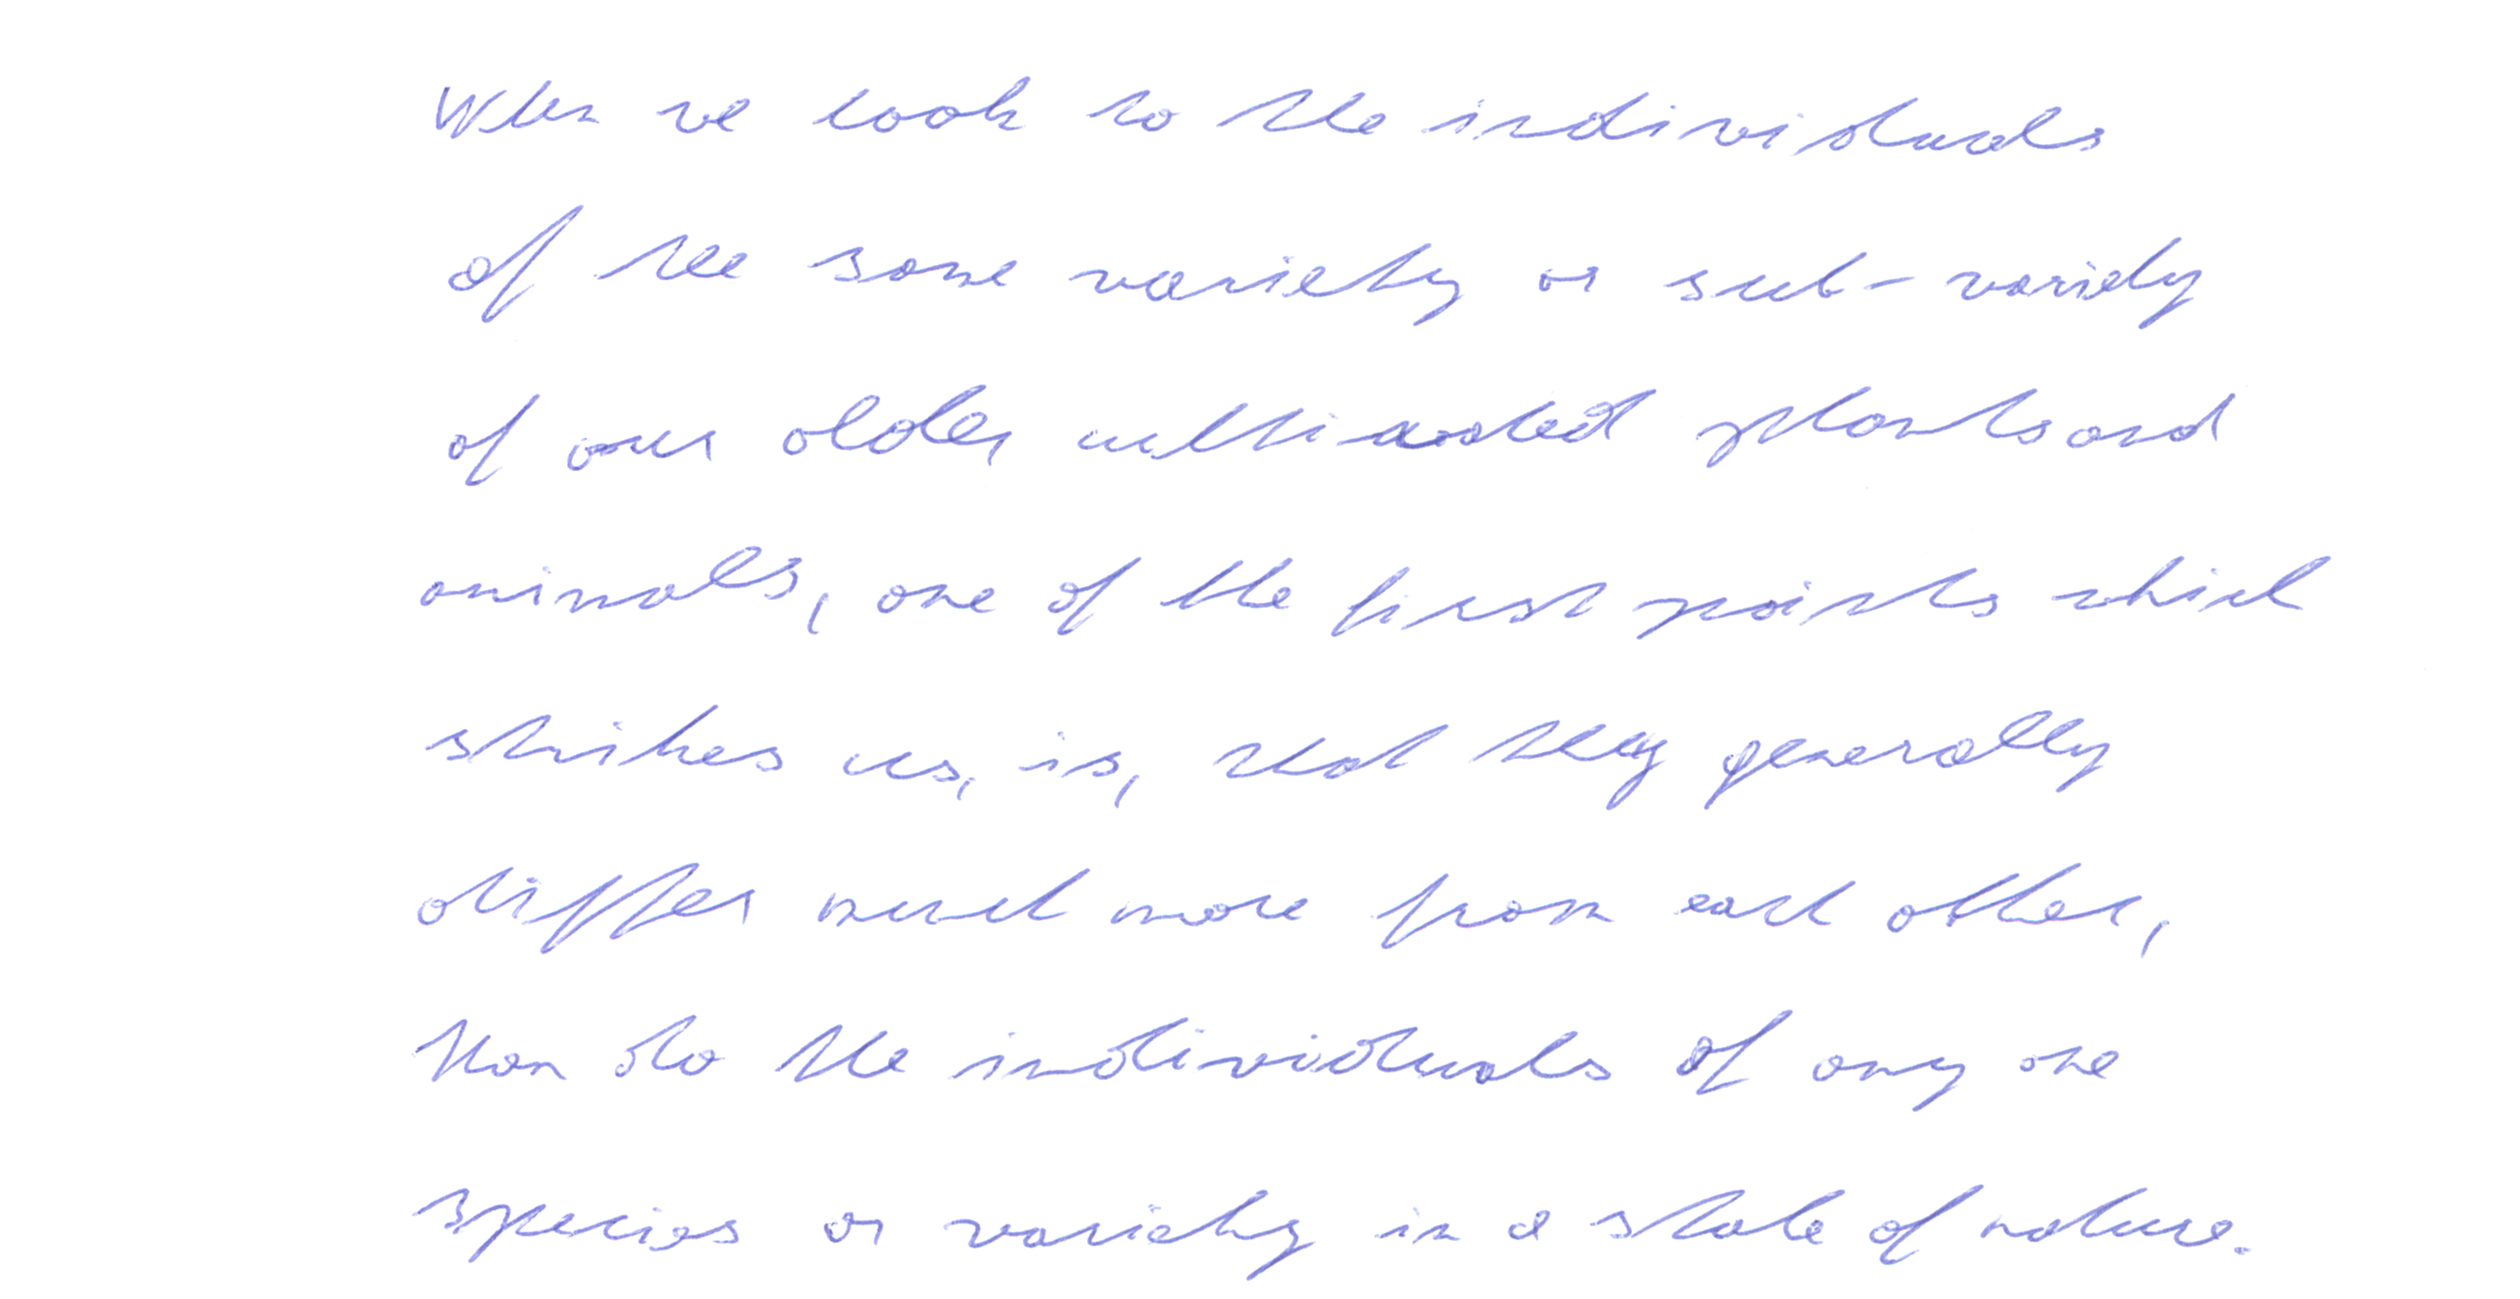 When we look to the individuals
of the same variety or sub-variety
of our older cultivated plants and
animals, one of the first points which
strikes us, is, that they generally
differ much more from each other,
than do the individuals of any one
species or variety in a state of nature.